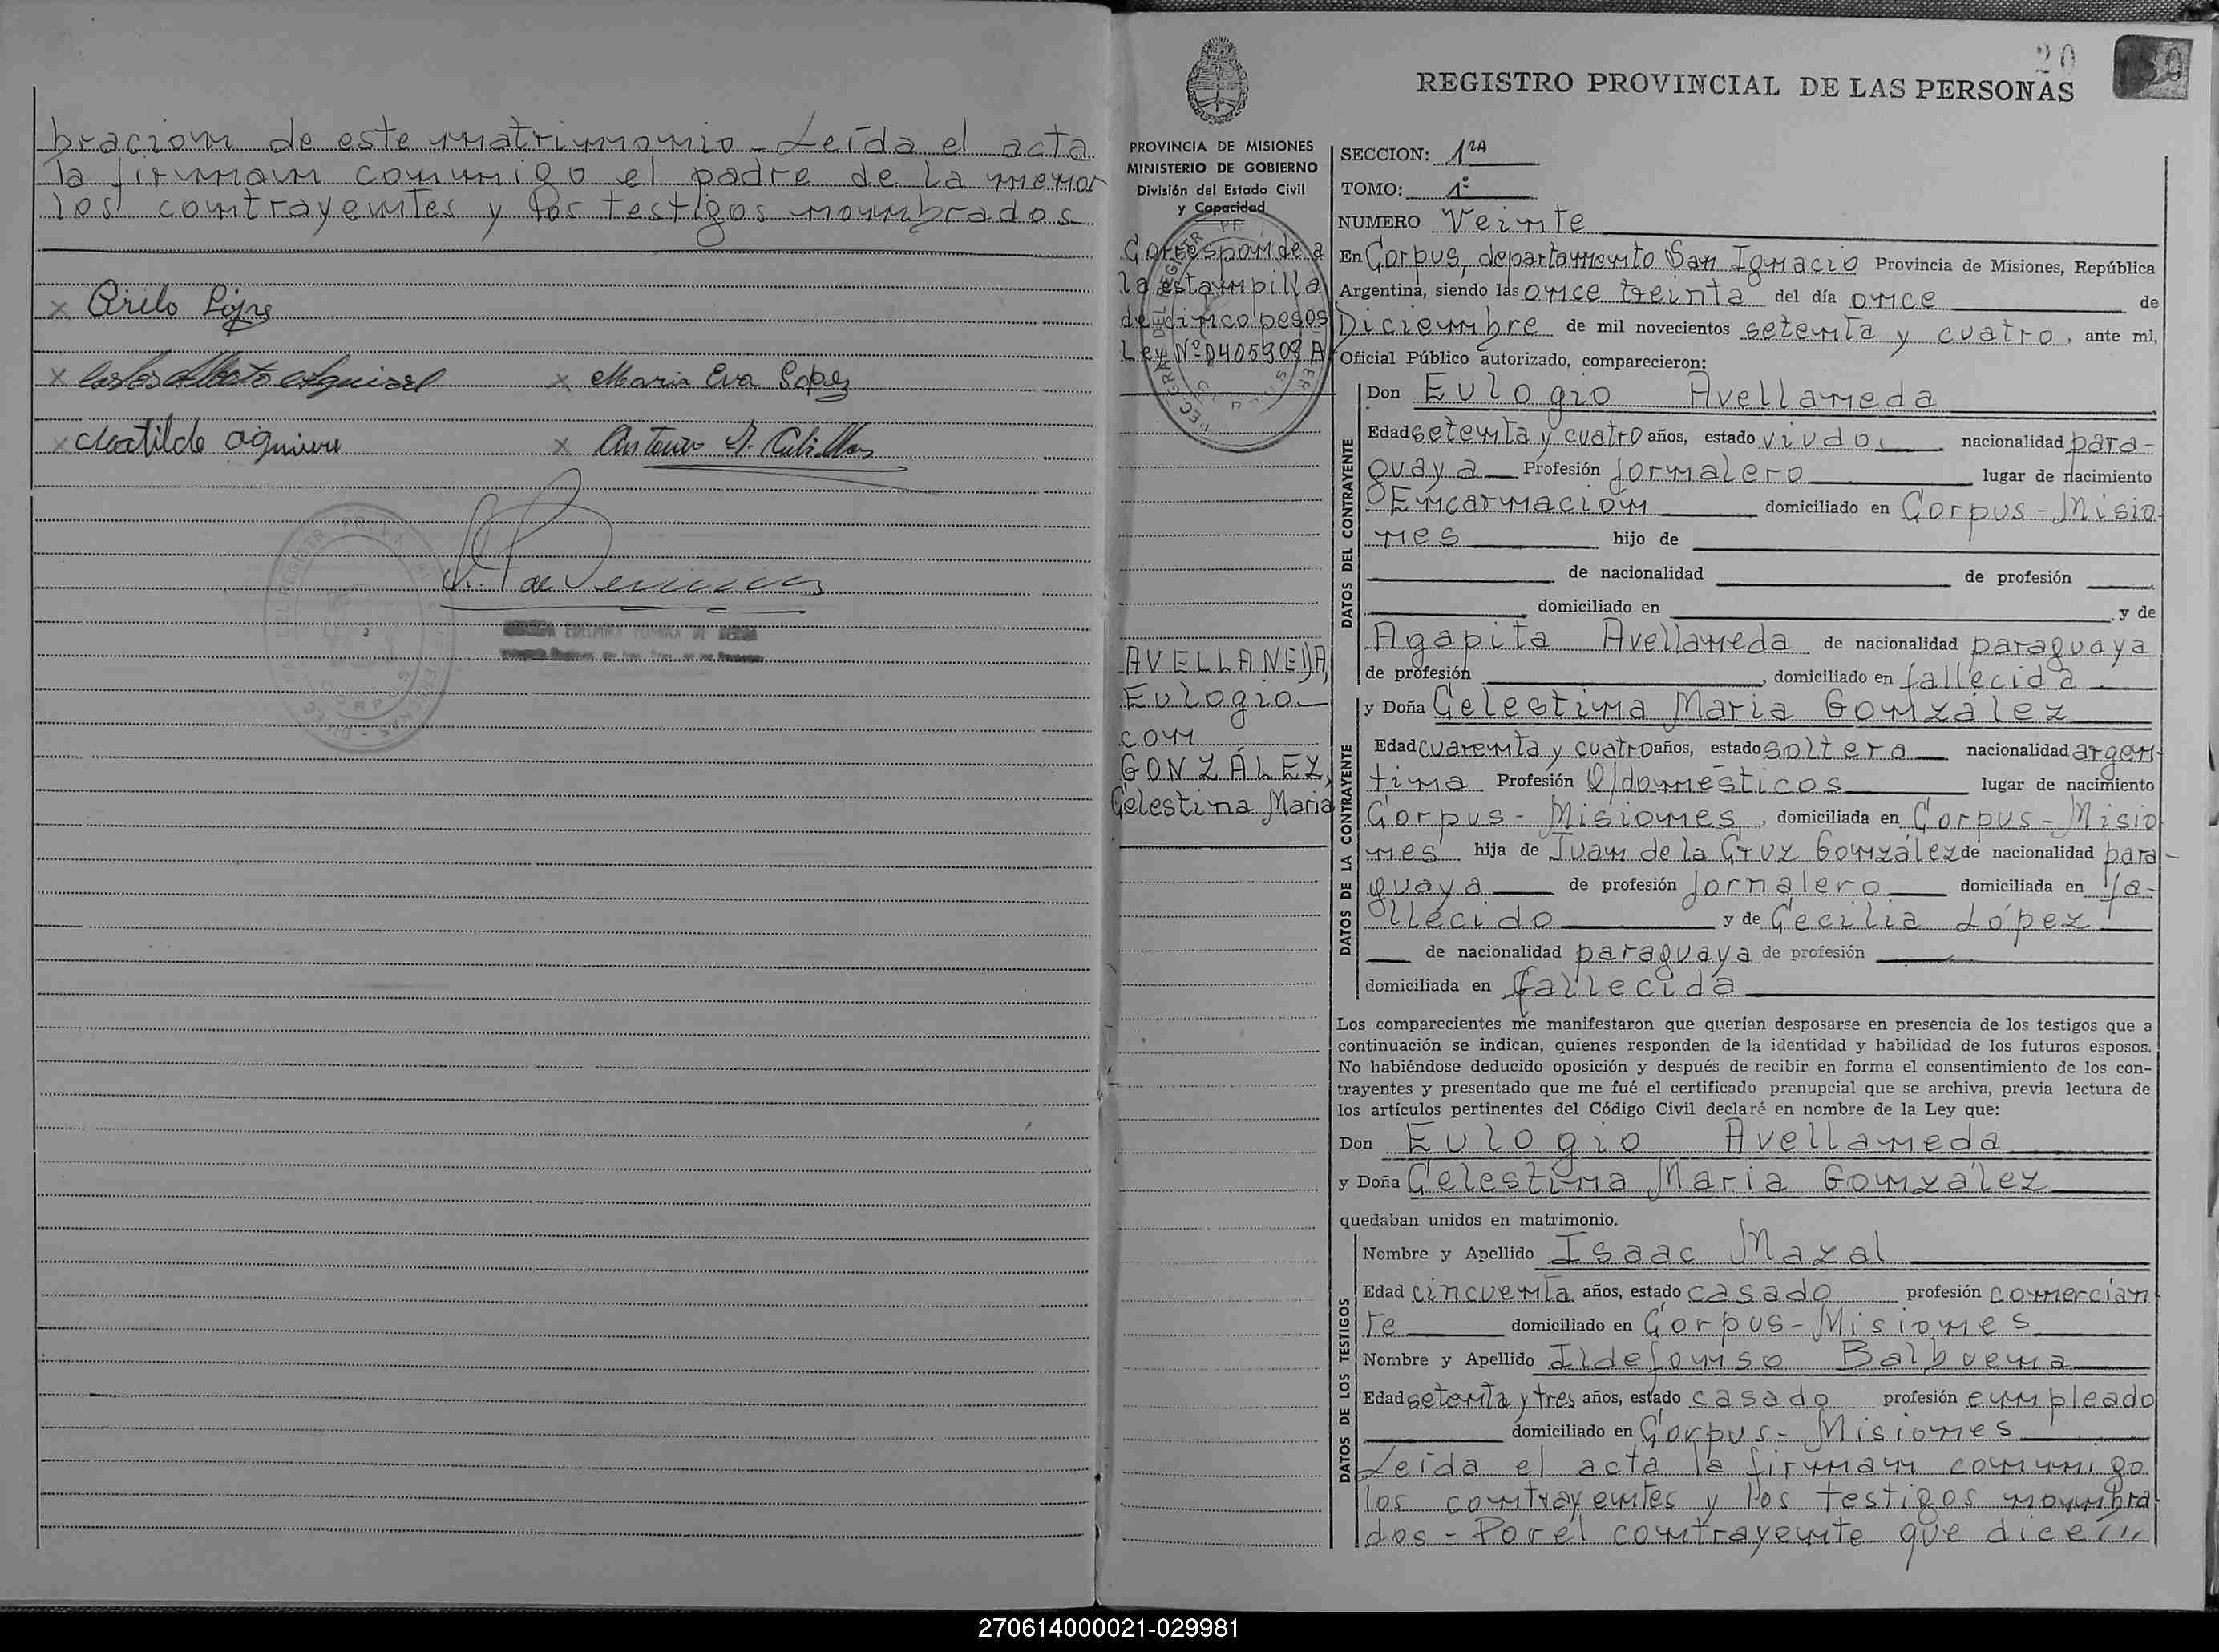 bracion de este matrimonio - Leída el acta
la firman conmigo el padre de la menor
los contrayentes y los testigos nombrados
x Cirilo López
x Carlos Alberto x María Eva López
x Matilde x Antonio
20
REGISTRO PROVINCIAL DE LAS PERSONAS
PROVINCIA DE MISIONES
MINISTERIO DE GOBIERNO
División del Estado Civil
y Capacidad
Corresponde a
la estampilla
de cinco pesos
Ley Nº 0405908 A
AVELLANEDA,
Eulogio
con
GONZÁLEZ,
Celestina Maria
SECCION: 1ra
TOMO: 1º
NUMERO Veinte
En Corpus, departamento San Ignacio Provincia de Misiones, República
Argentina, siendo las once treinta del día once de
Diciembre de mil novecientos setenta y cuatro, ante mi,
Oficial Público autorizado, comparecieron:
DATOS DEL CONTRAYENTE
Don Eulogio Avellaneda
Edad setenta y cuatro años, estado viudo, nacionalidad para-
guaya Profesión Jornalero lugar de nacimiento
Encarnación domiciliado en Corpus - Misio
nes hijo de
de nacionalidad de profesión
domiciliado en , y de
Agapita Avellaneda de nacionalidad paraguaya
de profesión , domiciliado en fallecida
DATOS DE LA CONTRAYENTE
y Doña Celestina Maria González
Edad cuarenta y cuatro años, estado soltera nacionalidad argen-
tina Profesión Q/domésticos lugar de nacimiento
Corpus - Misiones, domiciliada en Corpus - Misio
nes hija de Juan de la Cruz González de nacionalidad para-
guaya de profesión Jornalero domiciliada en fa-
llecido y de Cecilia López
de nacionalidad paraguaya de profesión
domiciliada en fallecida
Los comparecientes me manifestaron que querían desposarse en presencia de los testigos que a
continuación se indican, quienes responden de la identidad y habilidad de los futuros esposos.
No habiéndose deducido oposición y después de recibir en forma el consentimiento de los con-
trayentes y presentado que me fué el certificado prenupcial que se archiva, previa lectura de
los artículos pertinentes del Código Civil declaré en nombre de la Ley que:
Don Eulogio Avellaneda
y Doña Celestina Maria González
quedaban unidos en matrimonio.
DATOS DE LOS TESTIGOS
Nombre y Apellido Isaac Mazal
Edad cincuenta años, estado casado profesión comercian
te domiciliado en Corpus - Misiones
Nombre y Apellido Ildefonso Balbuena
Edad setenta y tres años, estado casado profesión empleado
domiciliado en Corpus - Misiones
Leída el acta la firman conmigo
los contrayentes y los testigos nombra
dos - Por el contrayente que dice///
270614000021-029981